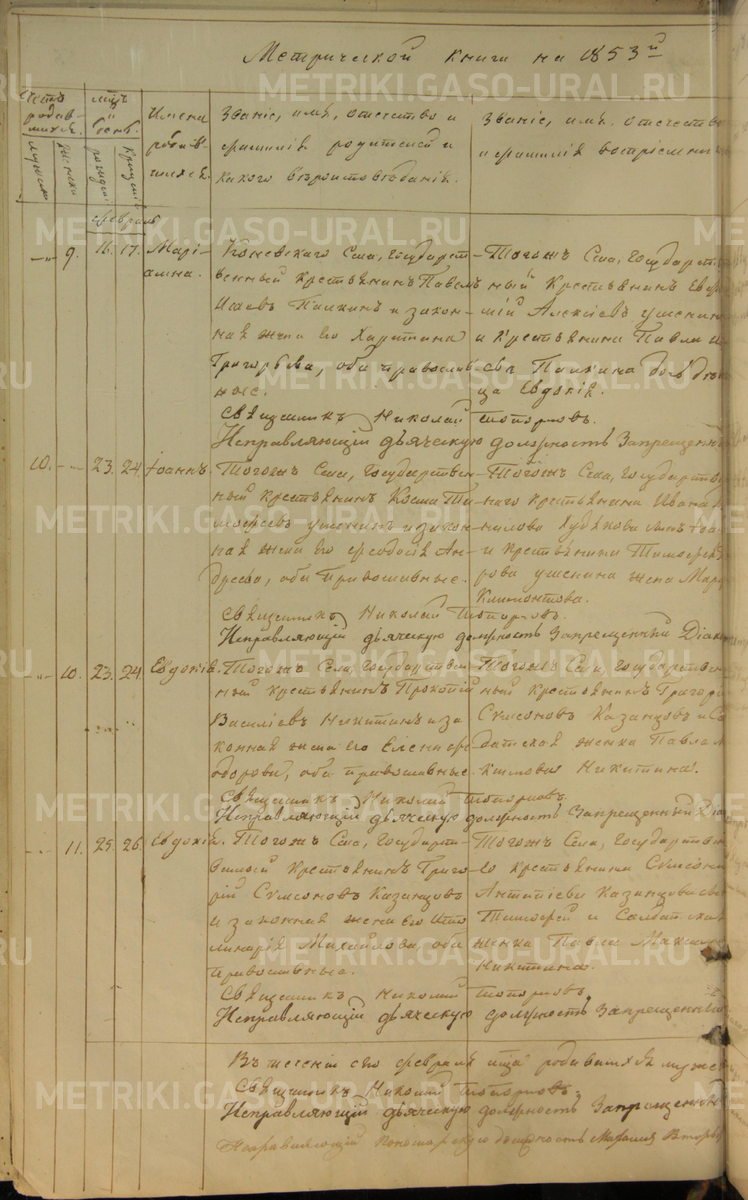 Метрической книги на 1853й
Счетъ родившихся.
Мѣсяцъ и день.
Имена родившихся.
Званіе, имя, отечество и фамилія родителей и какого вѣроисповѣданія.
Званіе, имя, отечество и фамилія воспріемни
мужеска
женска
рожденія
крещенія
февраль
9. 16. 17. Маріамна.
Коневскаго Села, Государст-
венный Крестьянинъ Павелъ
Исаевъ Палкинъ и закон-
ная жена его Харитина
Григорьева, оба православ-
ные.
Тогожъ Села, Государствен
ный Крестьянинъ Евфи
мій Алексіевъ
и Крестьянина Павла
Палкина дочь дѣви
ца Евдокія.
Священникъ Николай Топорковъ.
Исправляющій дьяческую должность Запрещенны
10. 23. 24. Іоаннъ.
Тогожъ Села, Государствен-
ный Крестьянинъ Косма Ти-
мофеевъ и закон-
ная жена его Феодосія Ан-
дреева, оба Православные.
Тогожъ Села, Государствен
наго Крестьянина Ивана
и Крестьянина Тимофея
жена Мар
Климонтова.
Священникъ Николай Топорковъ.
Исправляющій дьяческую должность Запрещенный Діако
10. 23. 24. Евдокія.
Тогожъ Села, Государствен-
ный Крестьянинъ Прокопій
Василіевъ Никитинъ и за
конная жена его Елена Фе
одорова, оба православные.
Тогожъ Села, Государствен
ный Крестьянинъ Григорі
Симеоновъ Казанцовъ и Со
датская женка Павла М
симова Никитина.
Священникъ Николай Топорковъ
Исправляющій дьяческую должность Запрещенный Діа
11. 25. 26. Евдокія.
Тогожъ Села, Государст-
венный Крестьянинъ Григо-
рій Симеоновъ Казанцовъ
и законная жена его Апол
линарія Михайлова, оба
православные.
Тогожъ Села, Государствен
го Крестьянина Симеона
Антипіева Казанцова сы
Тимофей и Солдатская
женка Павла Максим
Никитина.
Священникъ Николай Топорковъ.
Исправляющій дьяческую должность Запрещенный
Въ теченіи сего февраля мца родившихся мужес
Священникъ Николай Топорковъ.
Исправляющій дьяческую должность Запрещенный
Исправляющій Пономарскую должность
METRIKI.GASO-URAL.RU